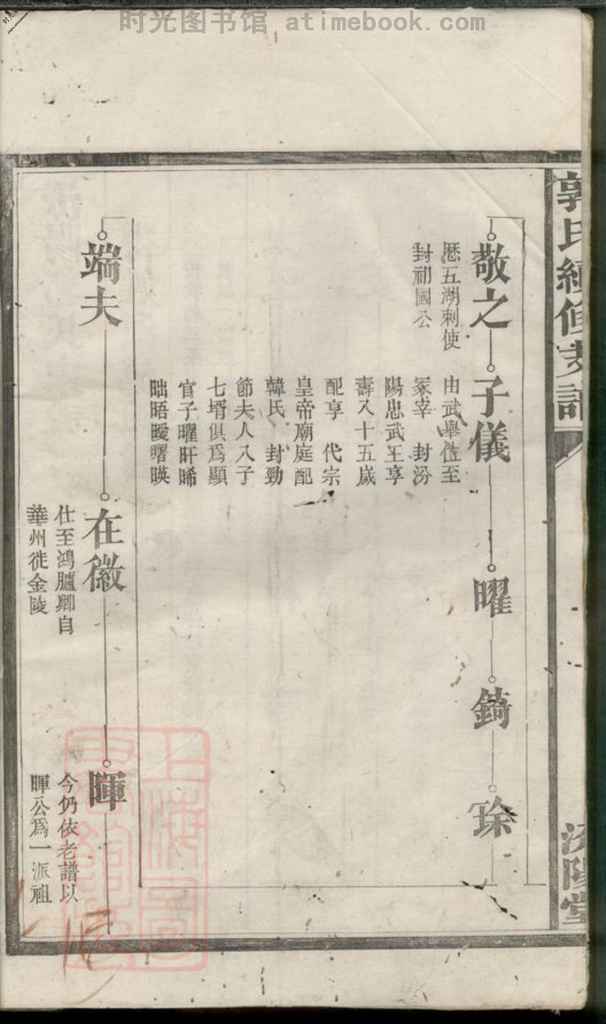 时光图书馆 atimebook.com
郭氏續修支譜
汾陽堂
敬之
歷五湖刺使
封祁國公
子儀
由武舉仕至
冢宰 封汾
陽忠武王享
壽八十五歲
配享 代宗
皇帝廟庭配
韓氏 封勁
節夫人八子
七壻俱爲顯
官子曜旰晞
昢晤曖曙暎
曜
錡
端夫
在徽
仕至鴻臚卿自
華州徙金陵
暉
今仍依老譜以
暉公爲一派祖